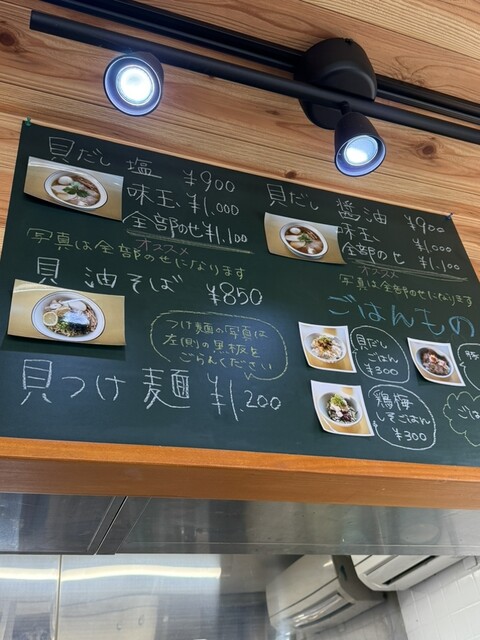 貝だし 塩 ¥900
味玉 ¥1,000
全部のせ ¥1,100
オススメ
写真は全部のせになります
貝 油そば ¥850
つけ麺の写真は
左側の黒板を
ごらんください
貝つけ麺 ¥1,200
貝だし 醤油 ¥900
味玉 ¥1,000
全部のせ ¥1,100
オススメ
写真は全部のせになります
ごはんもの
貝だし
ごはん
¥300
豚
鶏梅
しそごはん
¥300
ごは